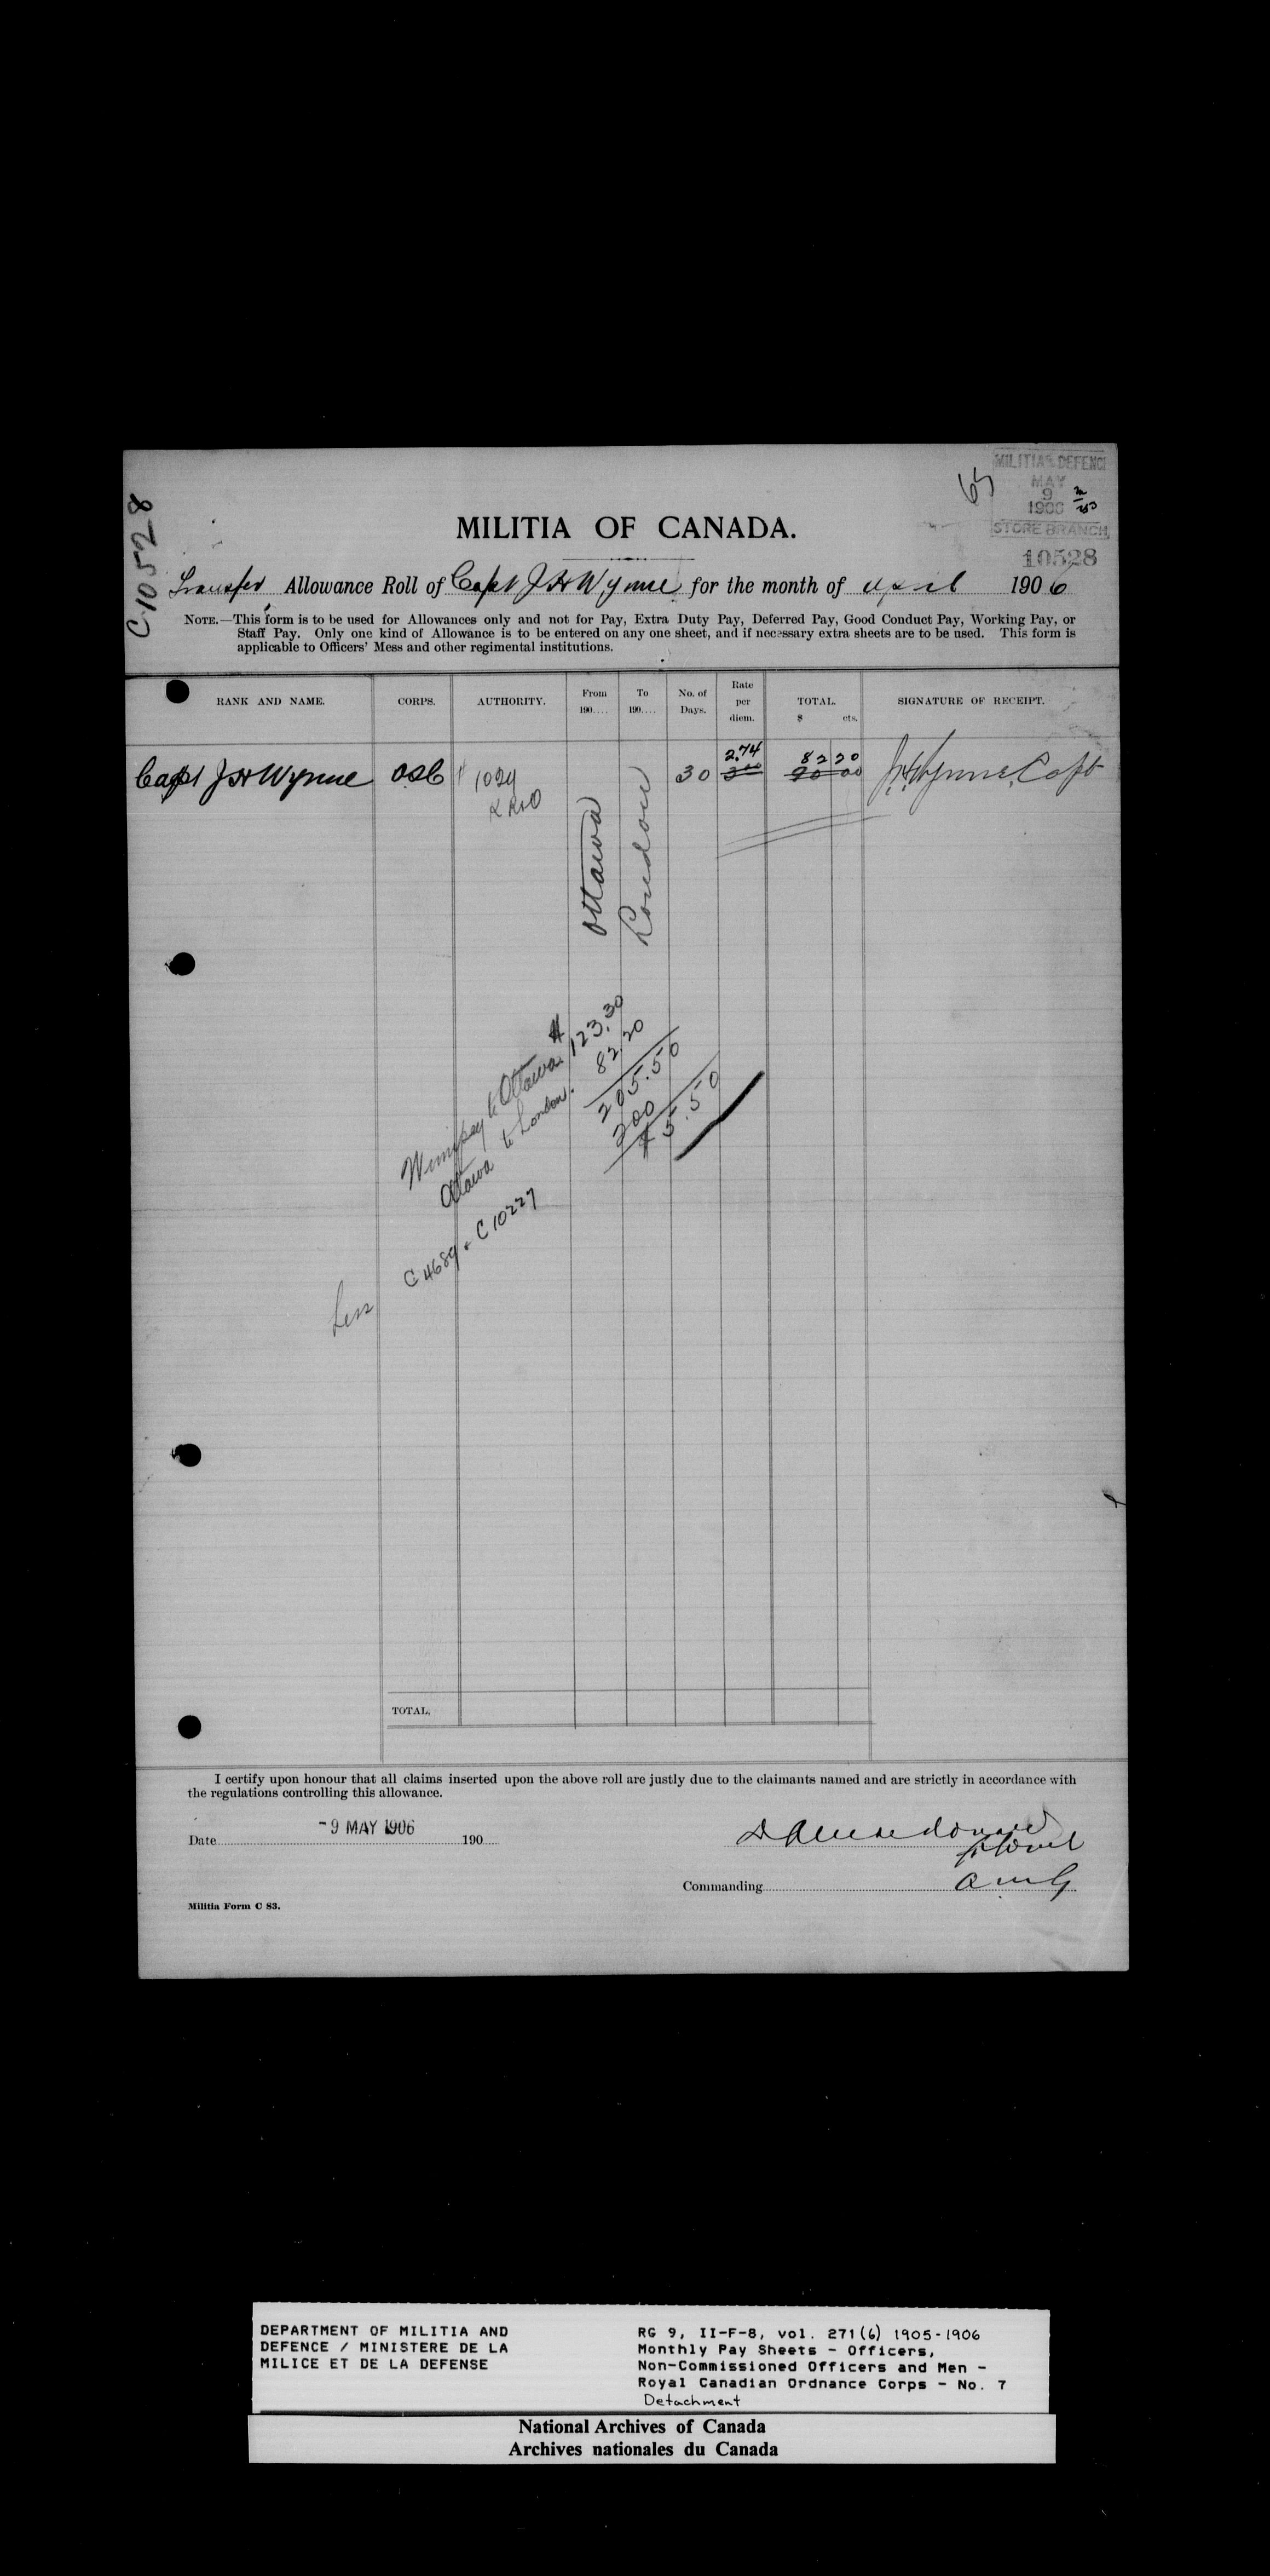 C10528
65
MILITIA & DEFENCE
MAY
9
1906
STORE BRANCH
10528
MILITIA OF CANADA.
Transfer Allowance Roll of Capt J H Wynne for the month of April 1906
NOTE.—This form is to be used for Allowances only and not for Pay, Extra Duty Pay, Deferred Pay, Good Conduct Pay, Working Pay, or
Staff Pay. Only one kind of Allowance is to be entered on any one sheet, and if necessary extra sheets are to be used. This form is
applicable to Officers' Mess and other regimental institutions.
RANK AND NAME. CORPS. AUTHORITY. From 190.... To 190.... No. of Days. Rate per diem. TOTAL. $ cts. SIGNATURE OF RECEIPT.
2.74 82 20
Capt J H Wynne OSC 1029 Ottawa London 30 3.00 90 00 J H Wynne Capt
Winnipeg to Ottawa $123.30
Ottawa to London. 82.20
205.50
Less C4689 & C10227 200
$5.50
TOTAL.
I certify upon honour that all claims inserted upon the above roll are justly due to the claimants named and are strictly in accordance with
the regulations controlling this allowance.
Date -9 MAY 1906 190
D A Macdonald
Colonel
Commanding
Militia Form C 83.
DEPARTMENT OF MILITIA AND
DEFENCE / MINISTERE DE LA
MILICE ET DE LA DEFENSE
RG 9, II-F-8, vol. 271(6) 1905-1906
Monthly Pay Sheets - Officers,
Non-Commissioned Officers and Men -
Royal Canadian Ordnance Corps - No. 7
Detachment
National Archives of Canada
Archives nationales du Canada